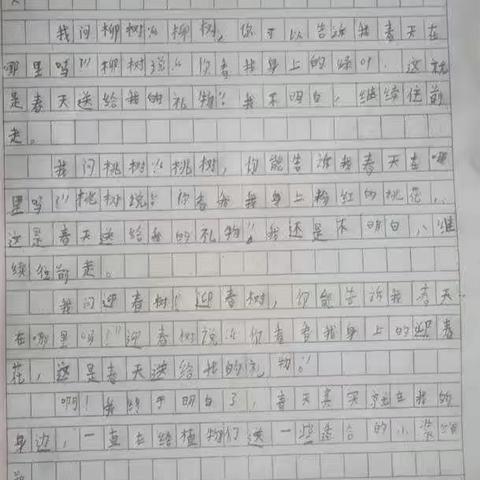 我问柳树:“柳树,你可以告诉我春天在
哪里吗?”柳树说:“你看我身上的绿叶,这就
是春天送给我的礼物。”我不明白,继续往前
走。
我问桃树:“桃树,你能告诉我春天在哪
里吗?”桃树说:“你看看我身上粉红的桃花,
这是春天送给我的礼物。”我还是不明白,继
续往前走。
我问迎春树:“迎春树,你能告诉我春天
在哪里吗?”迎春树说:“你看看我身上的迎春
花,这是春天送给我的礼物。”
啊!我终于明白了,春天其实就在我的
身边,一直在给植物们送一些适合的小